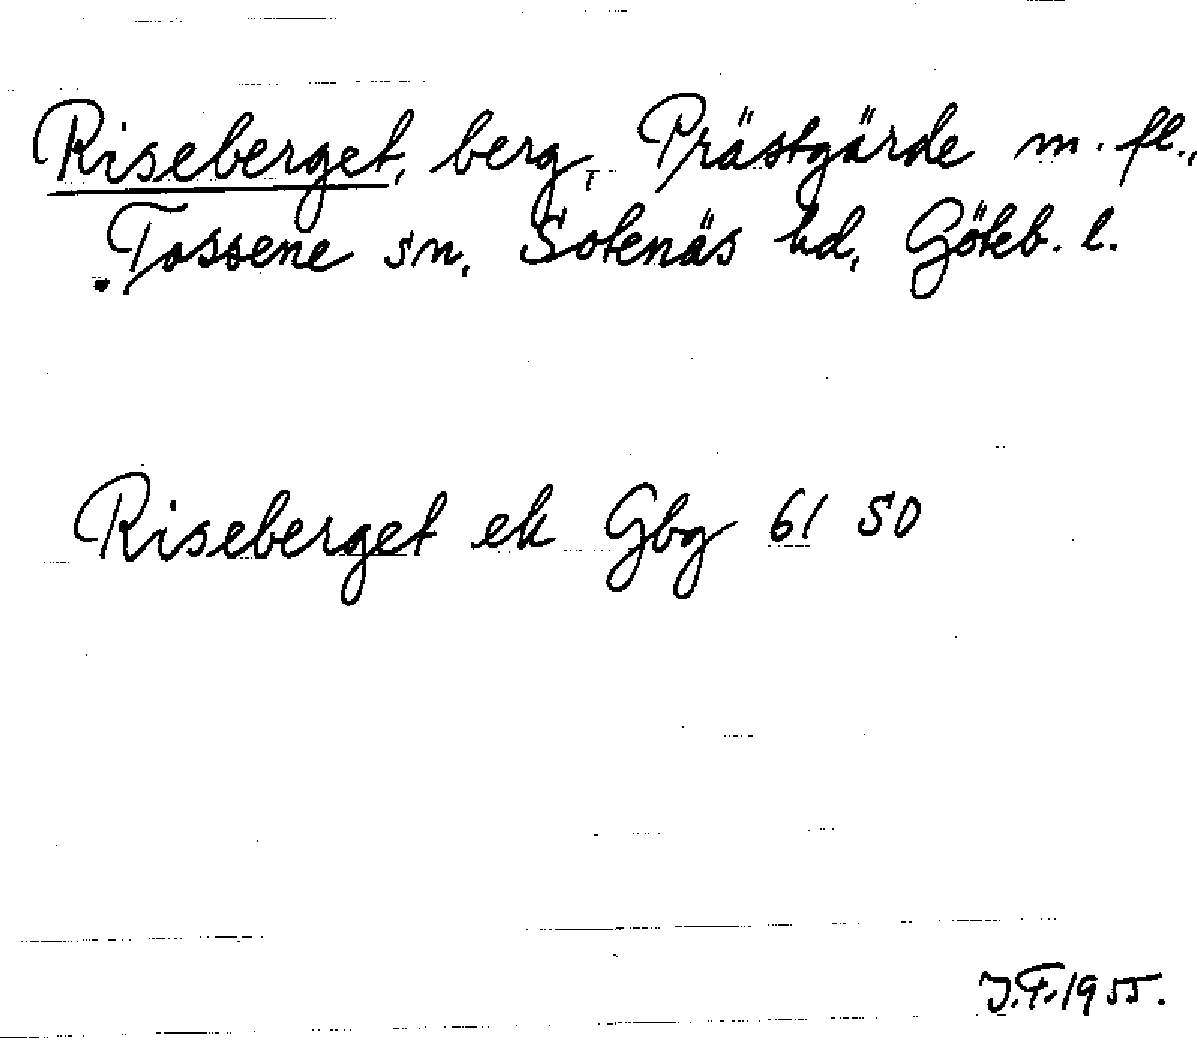 Riseberget, berg, Prästgärde m. fl.,
Tossene sn, Sotenäs hd, Göteb. l.
Riseberget ek Gbg 61 50
J.F. 1955.